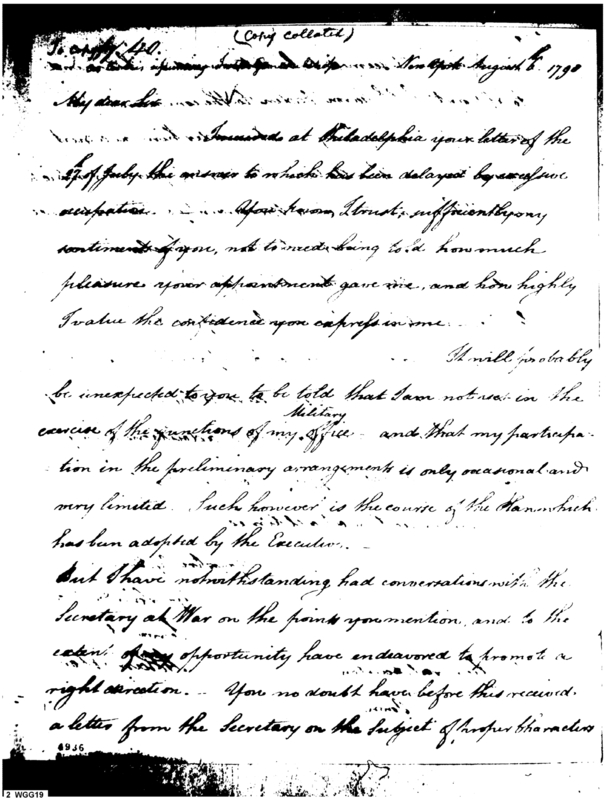 (Copy collated)
To copy 40.
New York August 6. 1798
My dear Sir
I received at Philadelphia your letter of the
27 of July the answer to which has been delayed by excessive
occupation. You know, I trust, sufficiently my
sentiments of you, not to need being told how much
pleasure your appointment gave me, and how highly
I value the confidence you express in me.
It will probably
be unexpected to you to be told that I am not yet in the
Military
exercise of the functions of my office - and that my participa-
tion in the preliminary arrangements is only occasional and
very limited. Such however is the course of the Plan which
has been adopted by the Executive.
But I have notwithstanding had conversations with the
Secretary at War on the points you mention, and to the
extent of my opportunity have endeavored to promote a
right direction. You no doubt have before this received
a letter from the Secretary on the Subject of proper Characters
6936
2 WGG19